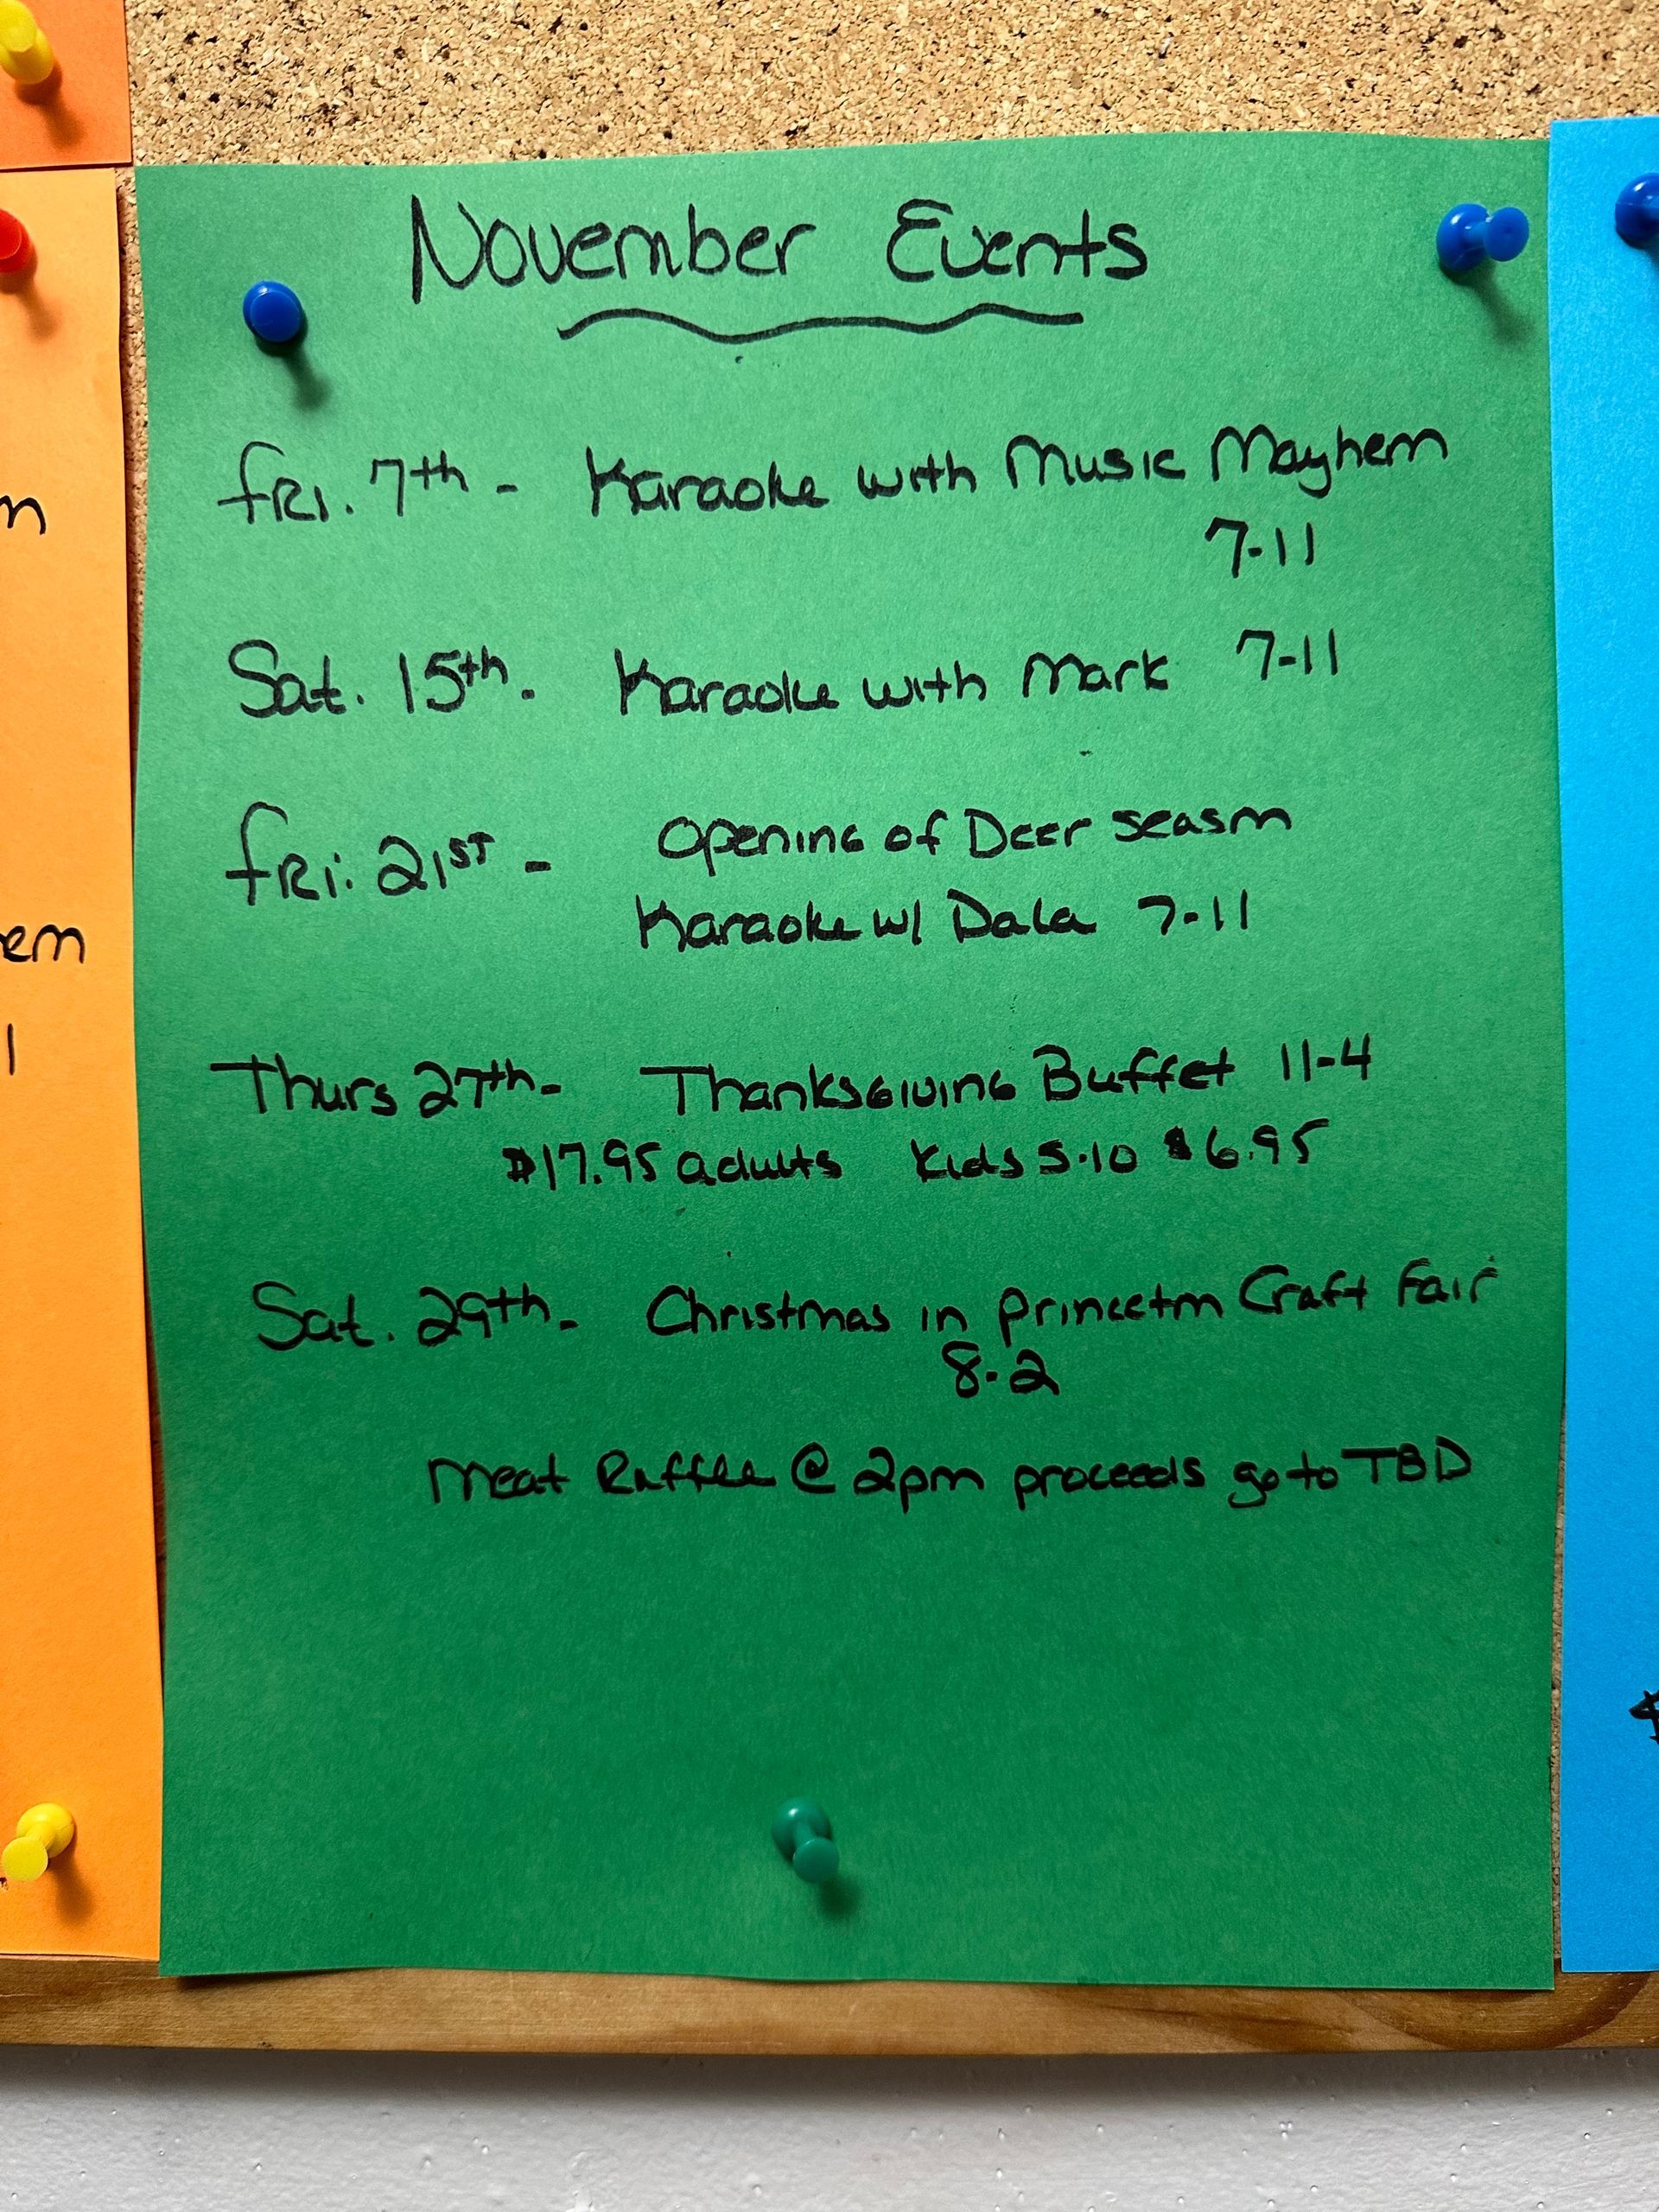 November Events
Fri. 7th - Karaoke with Music Mayhem
7-11
Sat. 15th. Karaoke with Mark 7-11
Fri: 21st - Opening of Deer season
Karaoke w/ Dala 7-11
Thurs 27th - Thanksgiving Buffet 11-4
$17.95 adults Kids 5-10 $6.95
Sat. 29th - Christmas in Princeton Craft Fair
8-2
Meat Raffle @ 2pm proceeds go to TBD
em
$